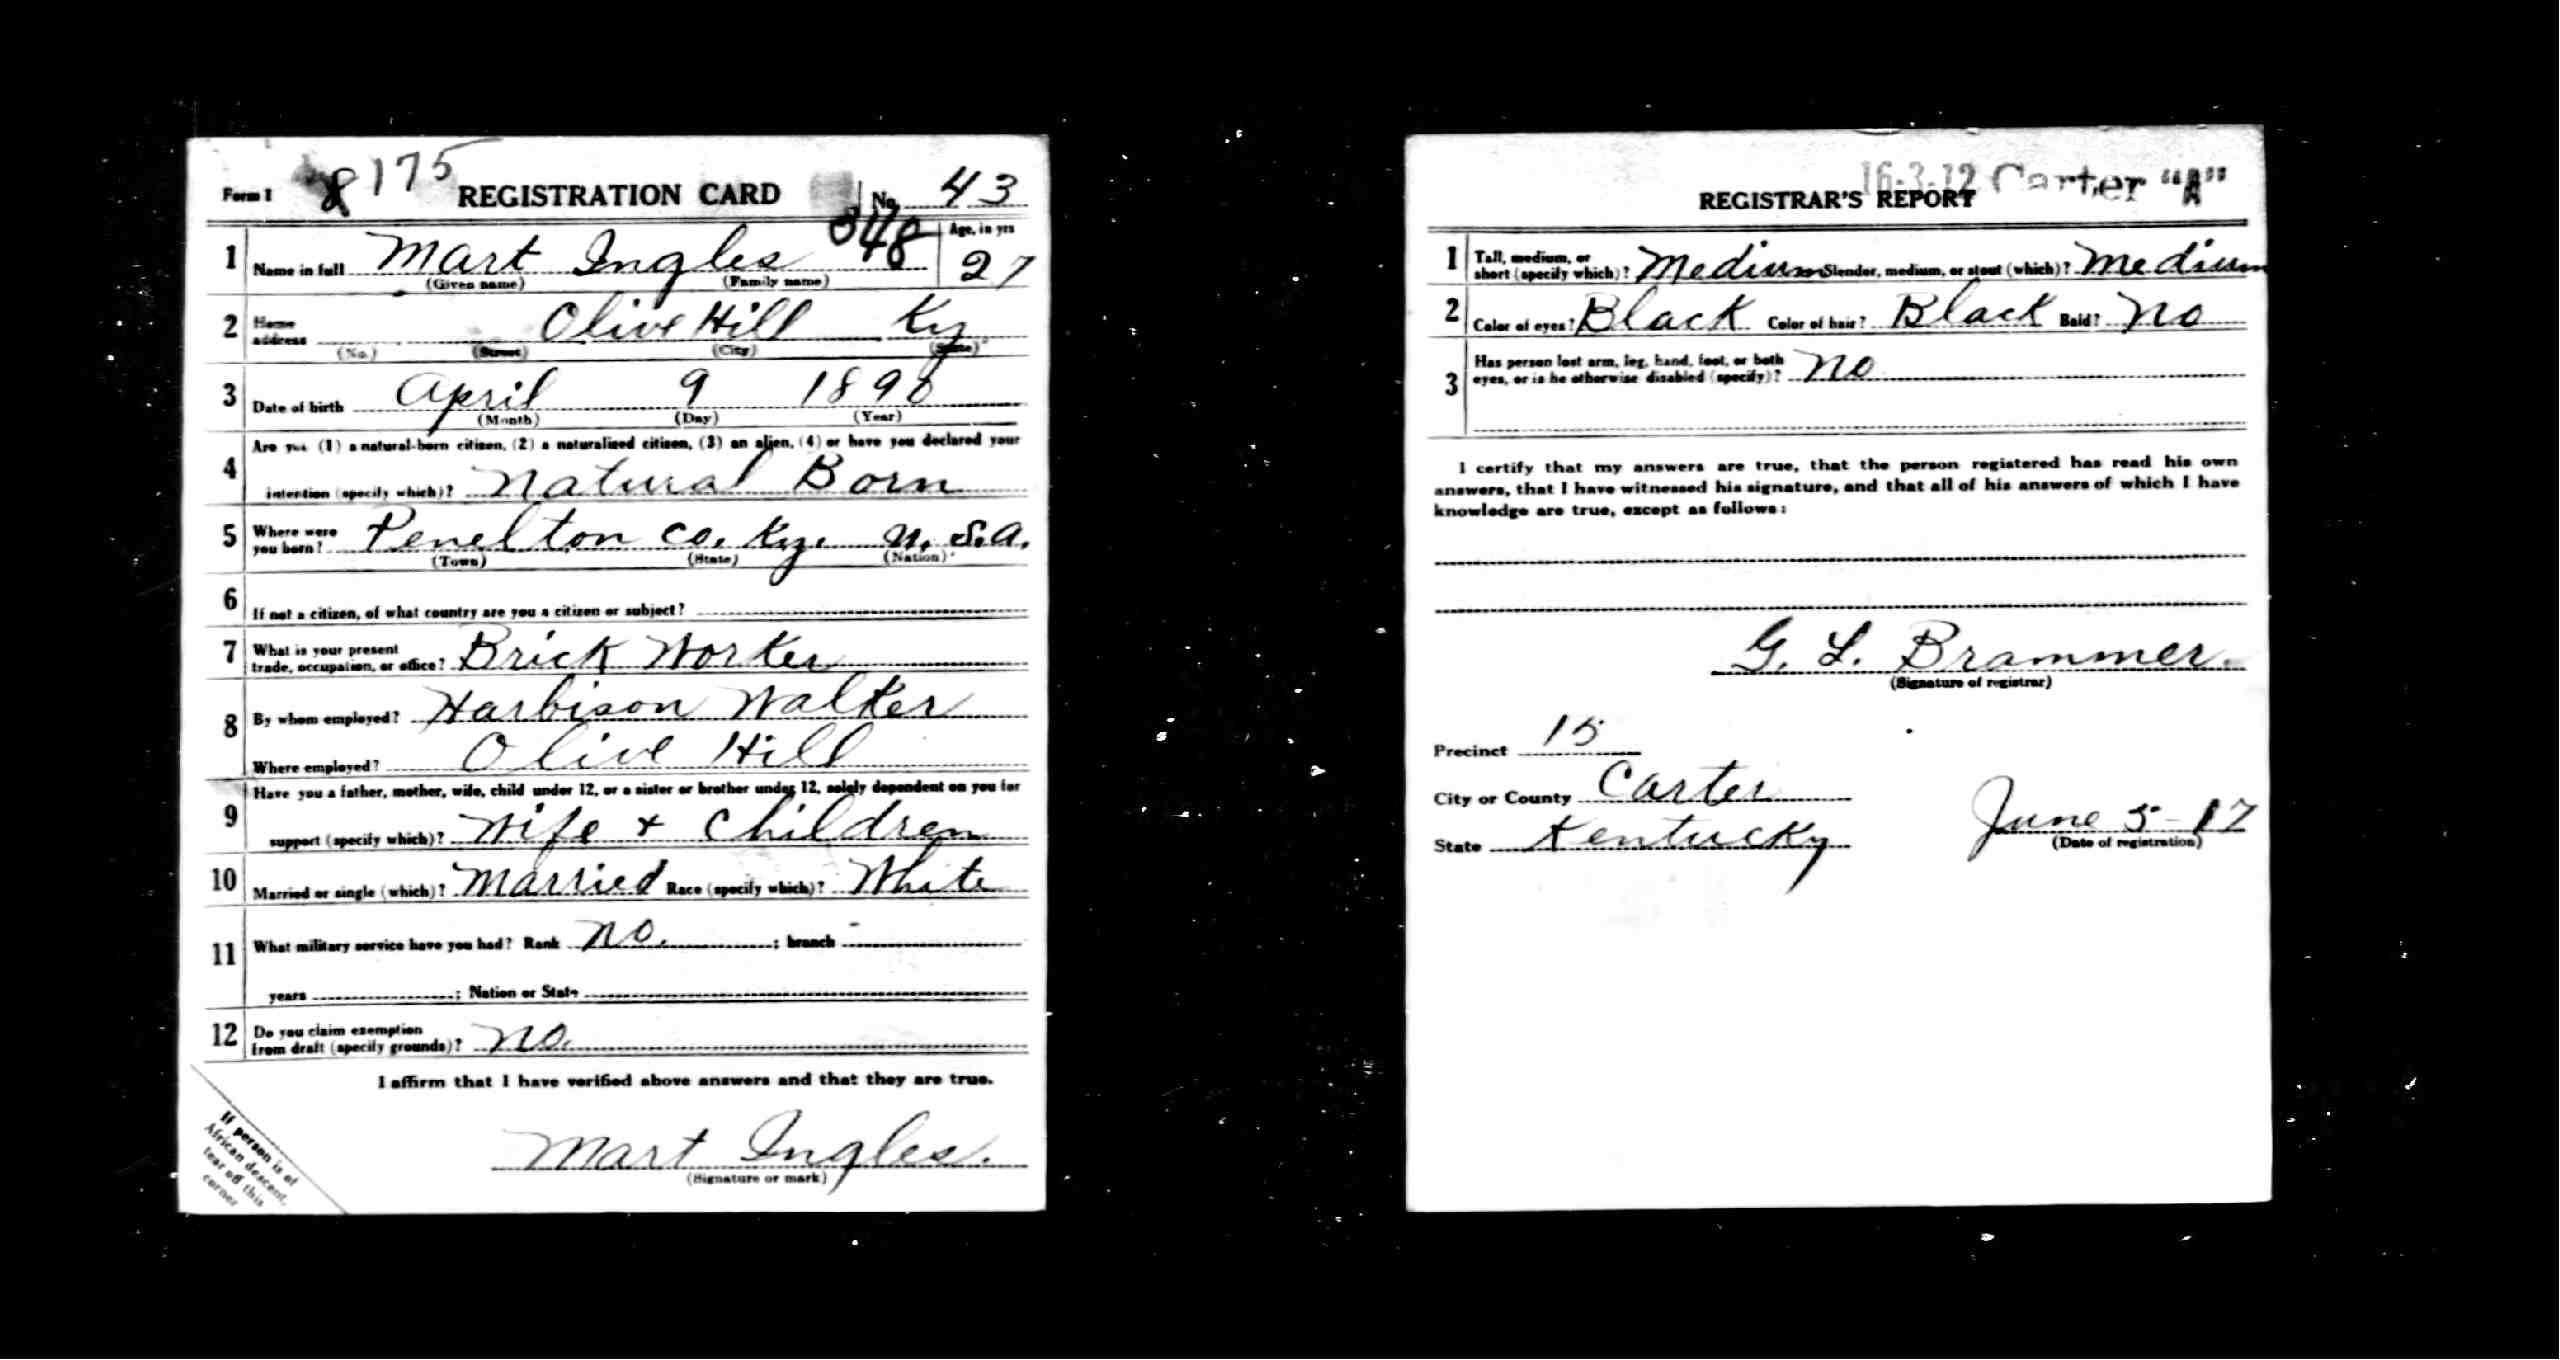 Form 1 8175 REGISTRATION CARD No. 43
348
1 Name in full Mart Ingles Age, in yrs 27
(Given name) (Family name)
2 Home address Olive Hill Ky
(No.) (Street) (City) (State)
3 Date of birth April 9 1890
(Month) (Day) (Year)
4 Are you (1) a natural-born citizen, (2) a naturalized citizen, (3) an alien, (4) or have you declared your
intention (specify which)? Natural Born
5 Where were you born? Penelton Co. Ky. U.S.A.
(Town) (State) (Nation)
6 If not a citizen, of what country are you a citizen or subject?
7 What is your present trade, occupation, or office? Brick Worker
8 By whom employed? Harbison Walker
Where employed? Olive Hill
9 Have you a father, mother, wife, child under 12, or a sister or brother under 12, solely dependent on you for
support (specify which)? Wife + Children
10 Married or single (which)? Married Race (specify which)? White
11 What military service have you had? Rank no. ; branch -
years ; Nation or State
12 Do you claim exemption from draft (specify grounds)? no.
I affirm that I have verified above answers and that they are true.
Mart Ingles.
(Signature or mark)
If person is of
African descent,
tear off this
corner
16-3-12 Carter "A"
REGISTRAR'S REPORT
1 Tall, medium, or short (specify which)? Medium Slender, medium, or stout (which)? Medium
2 Color of eyes? Black Color of hair? Black Bald? No
3 Has person lost arm, leg, hand, foot, or both
eyes, or is he otherwise disabled (specify)? No
I certify that my answers are true, that the person registered has read his own
answers, that I have witnessed his signature, and that all of his answers of which I have
knowledge are true, except as follows:
G. L. Brammer.
(Signature of registrar)
Precinct 15
City or County Carter
State Kentucky June 5-17
(Date of registration)